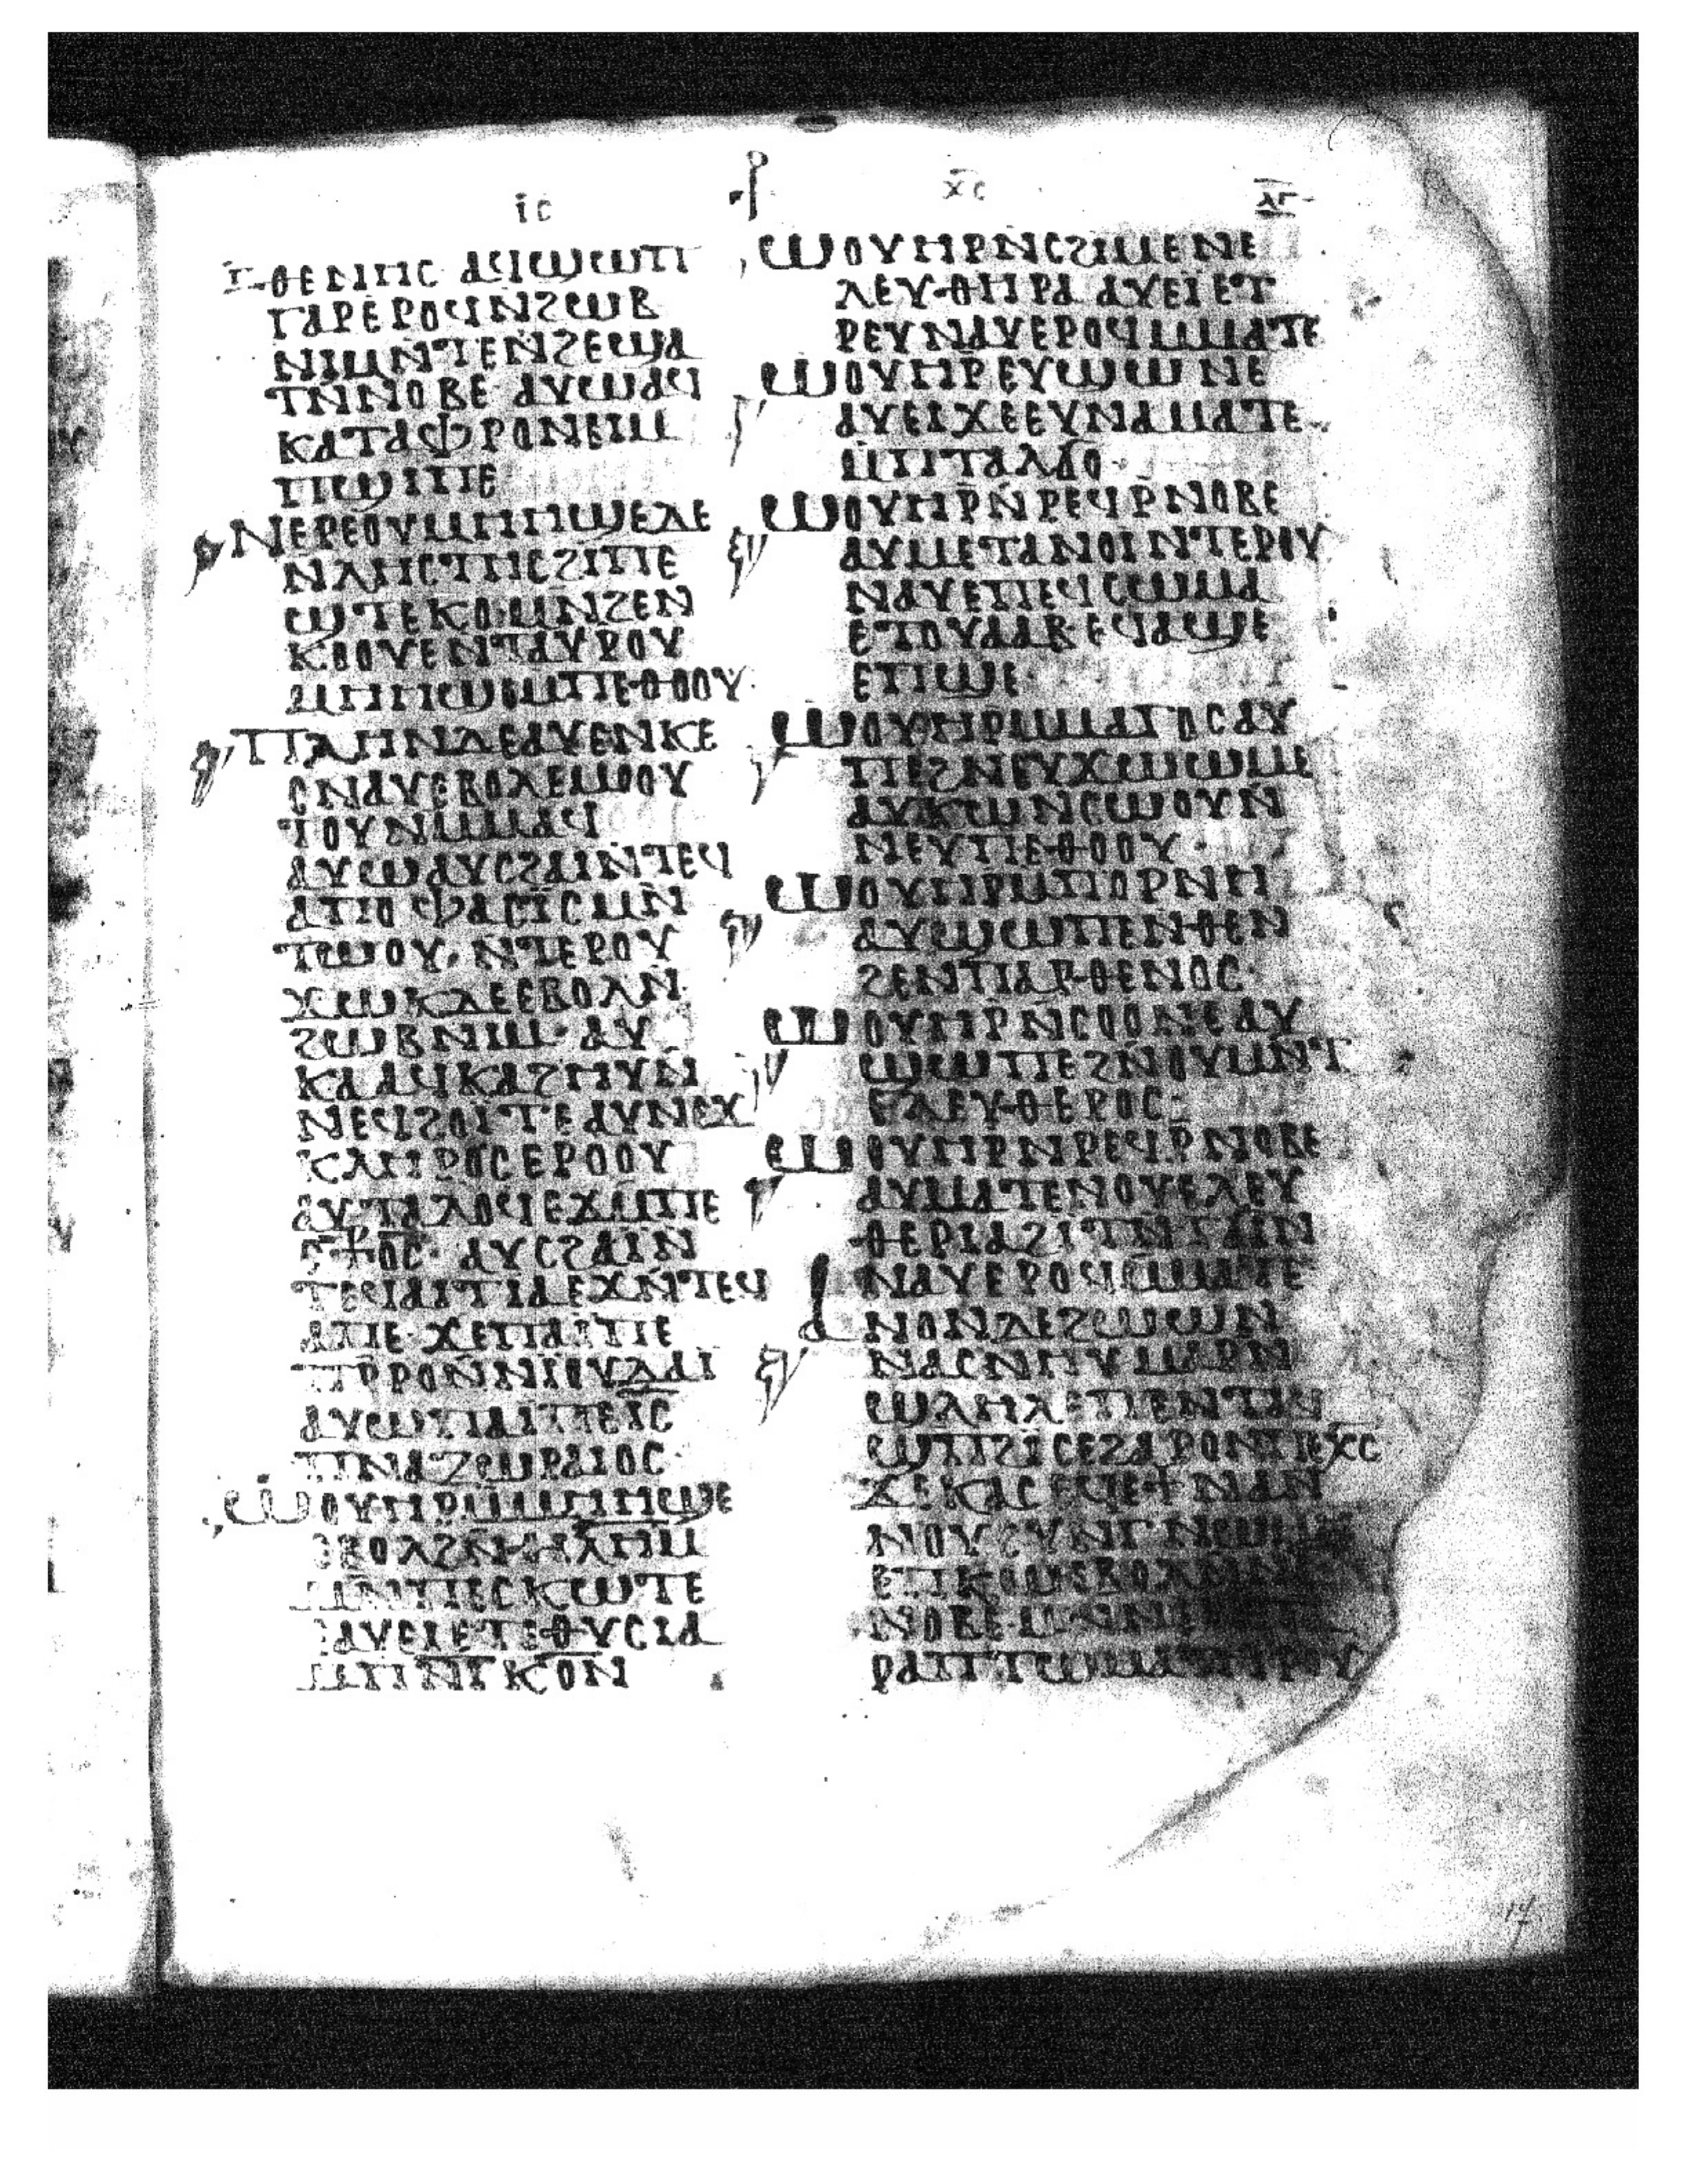 ⲓ̅ⲥ̅ ⲭ̅ⲥ̅ ⲗ̅ⲅ̅
ⲑⲉⲛⲏⲥ ⲁϥϣⲱⲡ
ⲅⲁⲣⲉⲣⲟϥⲛϩⲱⲃ
ⲛⲓⲙⲛⲧⲉⲛϩⲉϣⲁ
ⲧⲛⲛⲟⲃⲉ ⲁⲩⲱⲁϥ
ⲕⲁⲧⲁⲫⲣⲟⲛⲉⲓⲙ
ⲡϣⲓⲡⲉ
ⲛⲉⲣⲉⲟⲩⲙⲏⲏϣⲉⲇⲉ
ⲛⲗⲏⲥⲧⲏⲥϩⲓⲡⲉ
ϣⲧⲉⲕⲟⲙⲛϩⲉⲛ
ⲕⲟⲟⲩⲉⲛⲧⲁⲩⲣⲟⲩ
ⲙⲏⲏϣⲙⲡⲉⲑⲟⲟⲩ
ⲡⲗⲏⲛⲇⲉⲁⲩⲉⲛⲕⲉ
ⲥⲛⲁⲩⲉⲃⲟⲗⲉⲙⲟⲟⲩ
ⲧⲟⲩⲛⲙⲙⲁϥ
ⲁⲩⲱⲁⲩⲥϩⲁⲓⲛⲧⲉϥ
ⲁⲡⲟⲫⲁⲥⲓⲥⲙⲛ
ⲧⲱⲟⲩ· ⲛⲧⲉⲣⲟⲩ
ϫⲱⲕⲇⲉⲉⲃⲟⲗⲛ
ϩⲱⲃⲛⲓⲙ· ⲁⲩ
ⲕⲁⲁϥⲕⲁϩⲏⲩⲛ
ⲛⲉϥϩⲟⲓⲧⲉⲁⲩⲛⲉϫ
ⲕⲗⲏⲣⲟⲥⲉⲣⲟⲟⲩ
ⲁⲩⲧⲁⲗⲟϥⲉϫⲙⲡⲉ
ⲥ⳨ⲟⲥ· ⲁⲩⲥϩⲁⲓⲛ
ⲧⲉϥⲁⲓⲧⲓⲁⲉϫⲛⲧⲉϥ
ⲁⲡⲉ·ϫⲉⲡⲁⲓⲡⲉ
ⲡⲣⲣⲟⲛⲛⲓⲟⲩⲇⲁⲓ
ⲁⲩⲱⲡⲁⲓⲡⲉⲓ̅ⲥ̅
ⲡⲛⲁⲍⲱⲣⲁⲓⲟⲥ
ⲱⲟⲩⲏⲣⲙⲙⲏⲏϣⲉ
ⲉⲃⲟⲗϩⲛⲑⲓⲗⲏⲙ
ⲙⲛⲡⲉⲥⲕⲱⲧⲉ
ⲁⲩⲉⲓⲉⲧⲉⲑⲩⲥⲓⲁ
ⲱⲟⲩⲏⲣⲛⲥϩⲓⲙⲉⲛⲉ
ⲗⲉⲩⲑⲏⲣⲁ ⲁⲩⲉⲓⲉⲧ
ⲣⲉⲩⲛⲁⲩⲉⲣⲟϥⲙⲙⲁⲧⲉ
ⲱⲟⲩⲏⲣⲉⲩϣⲱⲛⲉ
ⲁⲩⲉⲓϫⲉⲉⲩⲛⲁⲙⲁⲧⲉ
ⲙⲡⲧⲁⲗϭⲟ
ⲱⲟⲩⲏⲣⲛⲣⲉϥⲣⲛⲟⲃⲉ
ⲁⲩⲙⲉⲧⲁⲛⲟⲓⲛⲧⲉⲣⲟⲩ
ⲛⲁⲩⲉⲡⲉϥⲥⲱⲙⲁ
ⲉⲧⲟⲩⲁⲁⲃ·ⲉϥⲁϣⲉ
ⲉⲡϣⲉ
ⲱⲟⲩⲏⲣⲙⲙⲁⲅⲟⲥⲁⲩ
ⲡⲉϩⲛⲉⲩϫⲱⲱⲙⲉ
ⲁⲩⲕⲱⲛⲥⲱⲟⲩⲛ
ⲛⲉⲩⲡⲉⲑⲟⲟⲩ·
ⲱⲟⲩⲏⲣⲙⲡⲟⲣⲛⲏ
ⲁⲩϣⲱⲡⲉⲛⲑⲉⲛ
ϩⲉⲛⲡⲁⲣⲑⲉⲛⲟⲥ·
ⲱⲟⲩⲏⲣⲛⲥⲟⲟⲛⲉⲁⲩ
ϣⲱⲡⲉϩⲛⲟⲩⲙⲛⲧ
ⲉⲗⲉⲩⲑⲉⲣⲟⲥ·
ⲱⲟⲩⲏⲣⲛⲣⲉϥⲣⲛⲟⲃⲉ
ⲁⲩⲙⲁⲧⲉⲛⲟⲩⲉⲗⲉⲩ
ⲑⲉⲣⲓⲁϩⲓⲧⲛ
ⲛⲁⲩⲉⲣⲟϥⲙⲙⲁⲧⲉ
ⲁⲛⲟⲛⲇⲉϩⲱⲱⲛ
ⲛⲁⲥⲛⲏⲩ ⲙⲁⲣⲛ
ϣⲗⲏⲗⲉⲡⲉⲛⲧⲁϥ
ϣⲡϩⲓⲥⲉϩⲁⲣⲟⲛⲡⲉⲭ̅ⲥ̅
ϫⲉⲕⲁⲥⲉϥⲉϯⲛⲁⲛ
ⲉⲡⲕⲱⲉⲃⲟⲗⲛⲛⲉ
ⲛⲟⲃⲉ